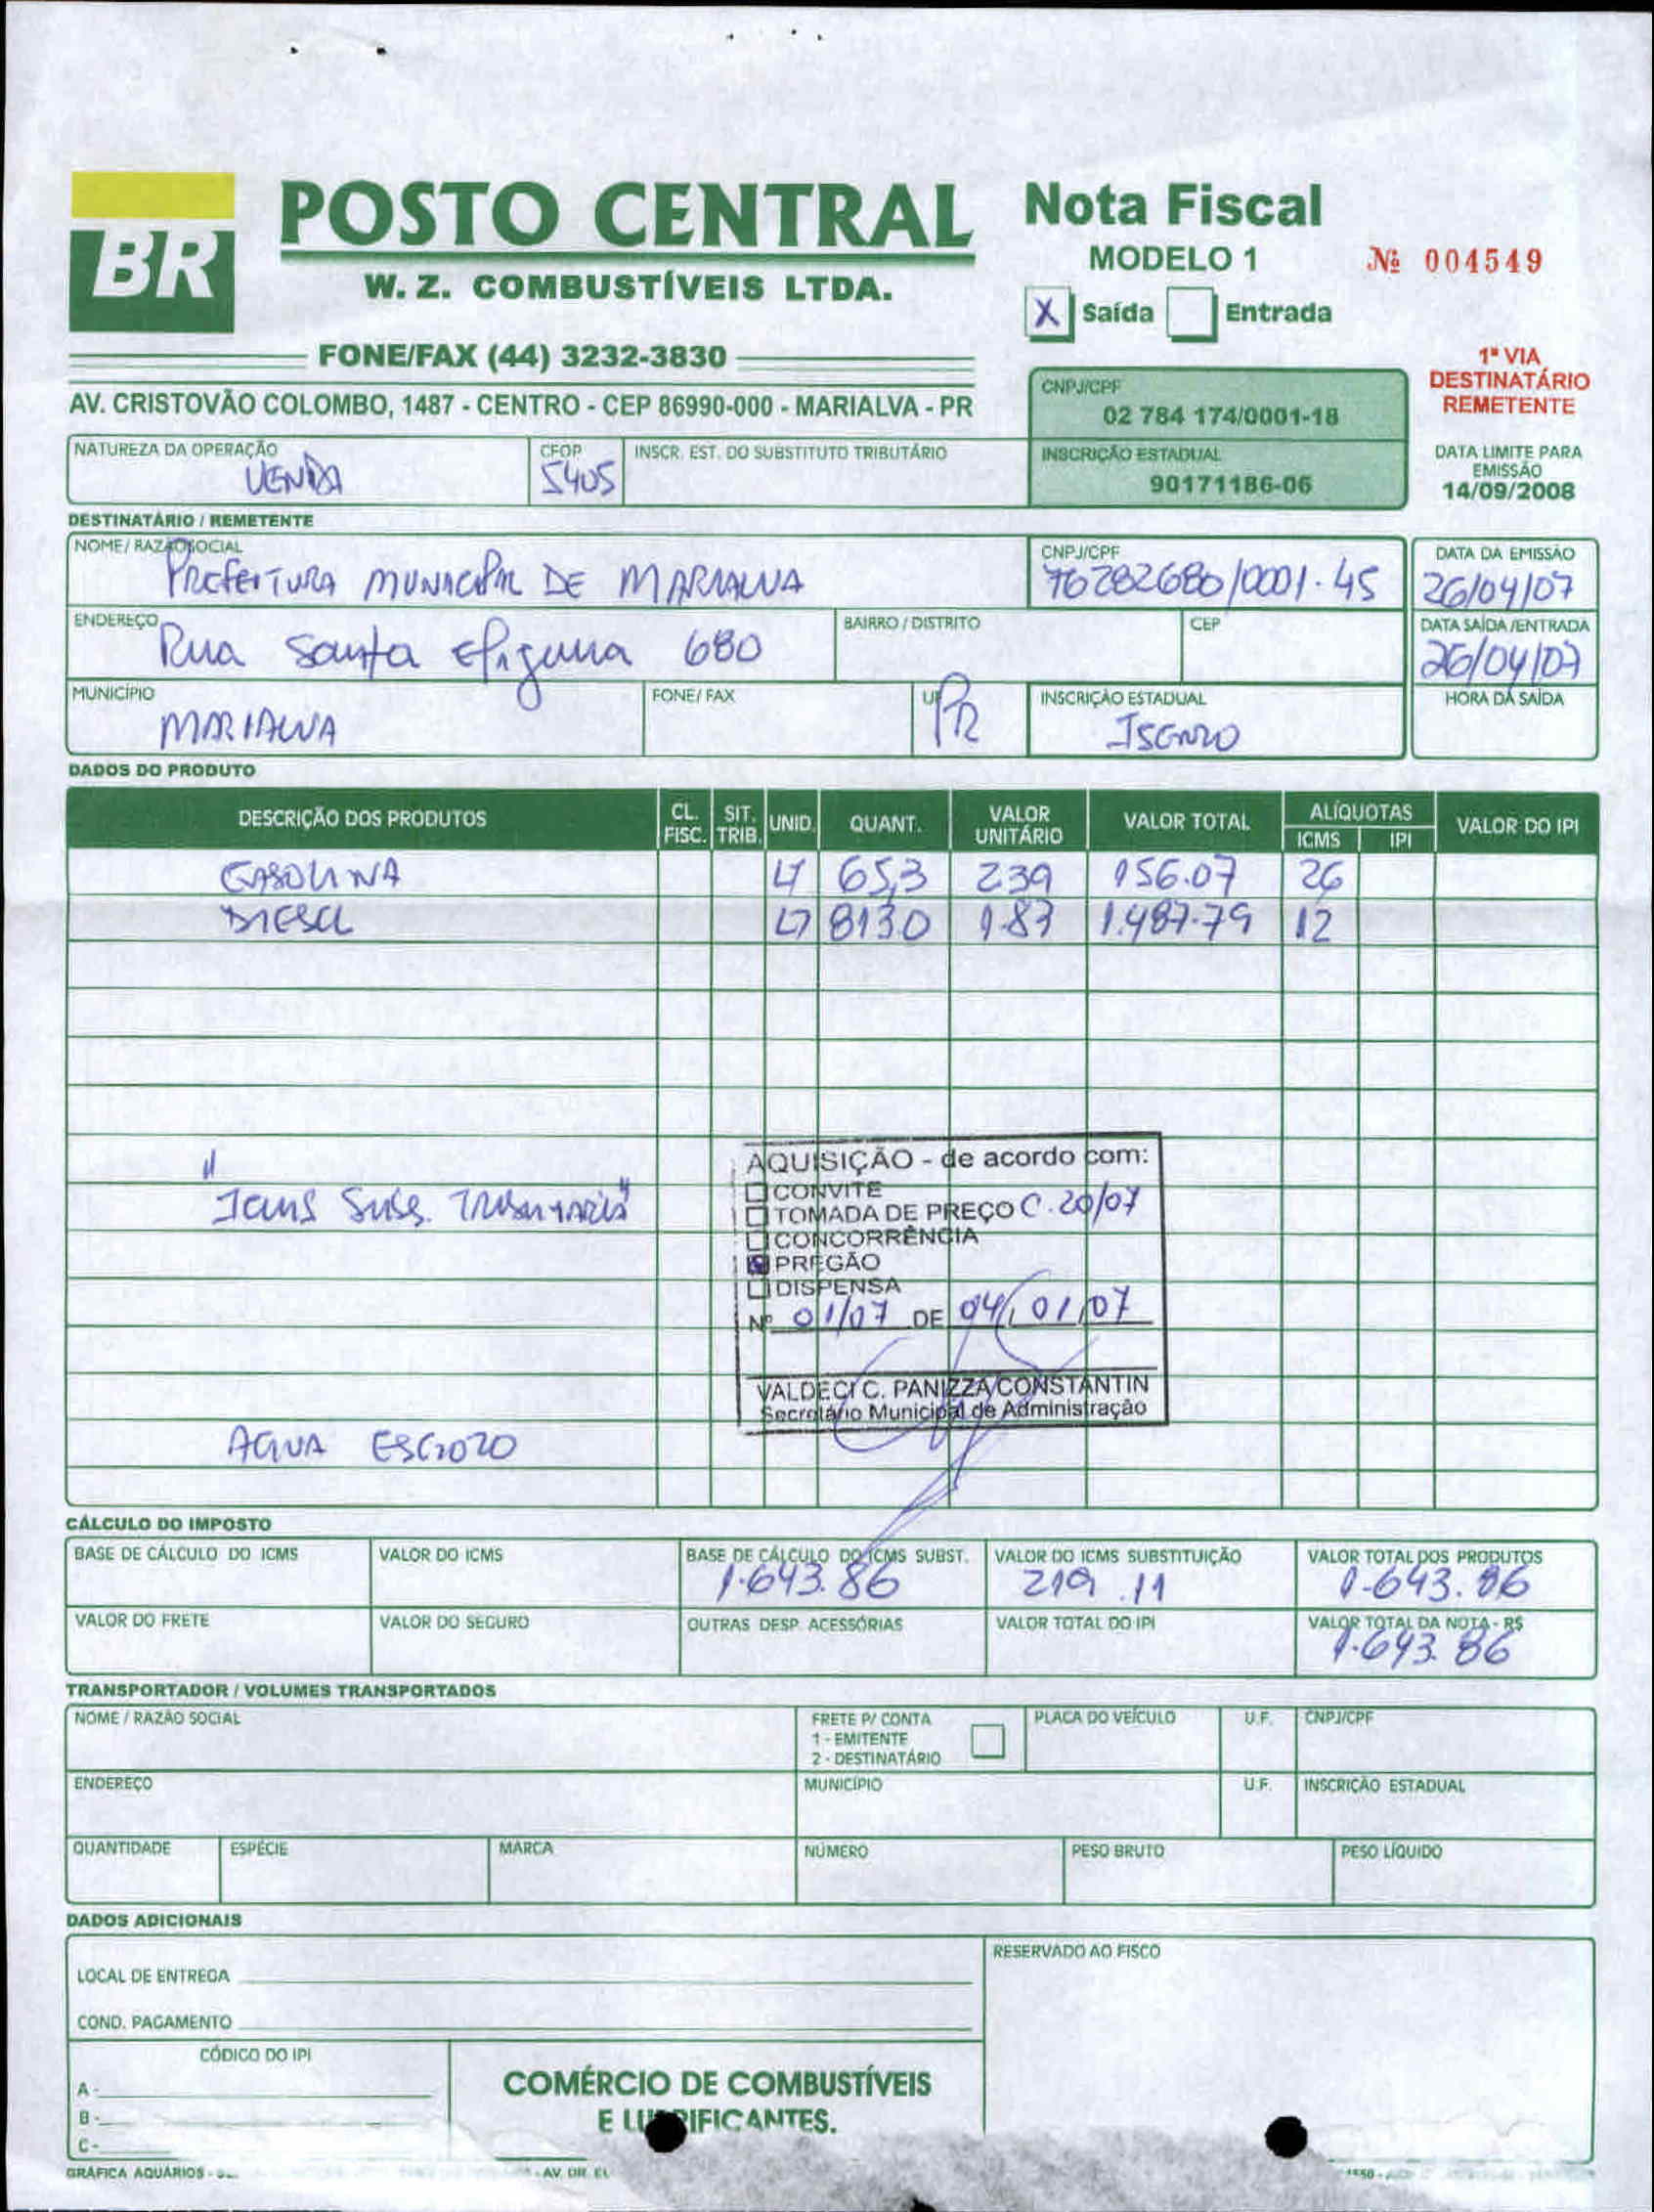 BR
POSTO CENTRAL
W. Z. COMBUSTÍVEIS LTDA.
FONE/FAX (44) 3232-3830
AV. CRISTOVÃO COLOMBO, 1487 - CENTRO - CEP 86990-000 - MARIALVA - PR
Nota Fiscal
MODELO 1
Nº 004549
X Saída Entrada
1ª VIA
DESTINATÁRIO
REMETENTE
CNPJ/CPF
02 784 174/0001-18
INSCRIÇÃO ESTADUAL
90171186-06
DATA LIMITE PARA
EMISSÃO
14/09/2008
NATUREZA DA OPERAÇÃO CFOP INSCR. EST. DO SUBSTITUTO TRIBUTÁRIO
VENDA 5405
DESTINATÁRIO / REMETENTE
NOME/ RAZÃO SOCIAL CNPJ/CPF DATA DA EMISSÃO
PREFEITURA MUNICIPAL DE MARIALVA 76282680/0001-45 26/04/07
ENDEREÇO BAIRRO / DISTRITO CEP DATA SAÍDA /ENTRADA
Rua Santa Efigenia 680 26/04/07
MUNICÍPIO FONE/ FAX UF INSCRIÇÃO ESTADUAL HORA DA SAÍDA
MARIALVA PR ISENTO
DADOS DO PRODUTO
DESCRIÇÃO DOS PRODUTOS CL. FISC. SIT. TRIB. UNID. QUANT. VALOR UNITÁRIO VALOR TOTAL ALÍQUOTAS ICMS IPI VALOR DO IPI
GASOLINA LT 65,3 239 156.07 26
DIESEL LT 813.0 1.83 1.487.79 12
AQUISIÇÃO - de acordo com:
CONVITE
"Icms Subs. Tributaria"
TOMADA DE PREÇO C. 20/07
CONCORRÊNCIA
PREGÃO
DISPENSA
Nº 01/07 DE 04/01/07
VALDECI C. PANIZZA CONSTANTIN
Secretário Municipal de Administração
AGUA ESGOTO
CÁLCULO DO IMPOSTO
BASE DE CÁLCULO DO ICMS VALOR DO ICMS BASE DE CÁLCULO DO ICMS SUBST. VALOR DO ICMS SUBSTITUIÇÃO VALOR TOTAL DOS PRODUTOS
1.643.86 219.11 1.643.86
VALOR DO FRETE VALOR DO SEGURO OUTRAS DESP. ACESSÓRIAS VALOR TOTAL DO IPI VALOR TOTAL DA NOTA - R$
1.643.86
TRANSPORTADOR / VOLUMES TRANSPORTADOS
NOME / RAZÃO SOCIAL FRETE P/ CONTA PLACA DO VEÍCULO U.F. CNPJ/CPF
1 - EMITENTE
2 - DESTINATÁRIO
ENDEREÇO MUNICÍPIO U.F. INSCRIÇÃO ESTADUAL
QUANTIDADE ESPÉCIE MARCA NÚMERO PESO BRUTO PESO LÍQUIDO
DADOS ADICIONAIS
RESERVADO AO FISCO
LOCAL DE ENTREGA
COND. PAGAMENTO
CÓDIGO DO IPI
A -
B -
C -
COMÉRCIO DE COMBUSTÍVEIS
E LUBRIFICANTES.
GRÁFICA AQUÁRIOS - AV. DR.